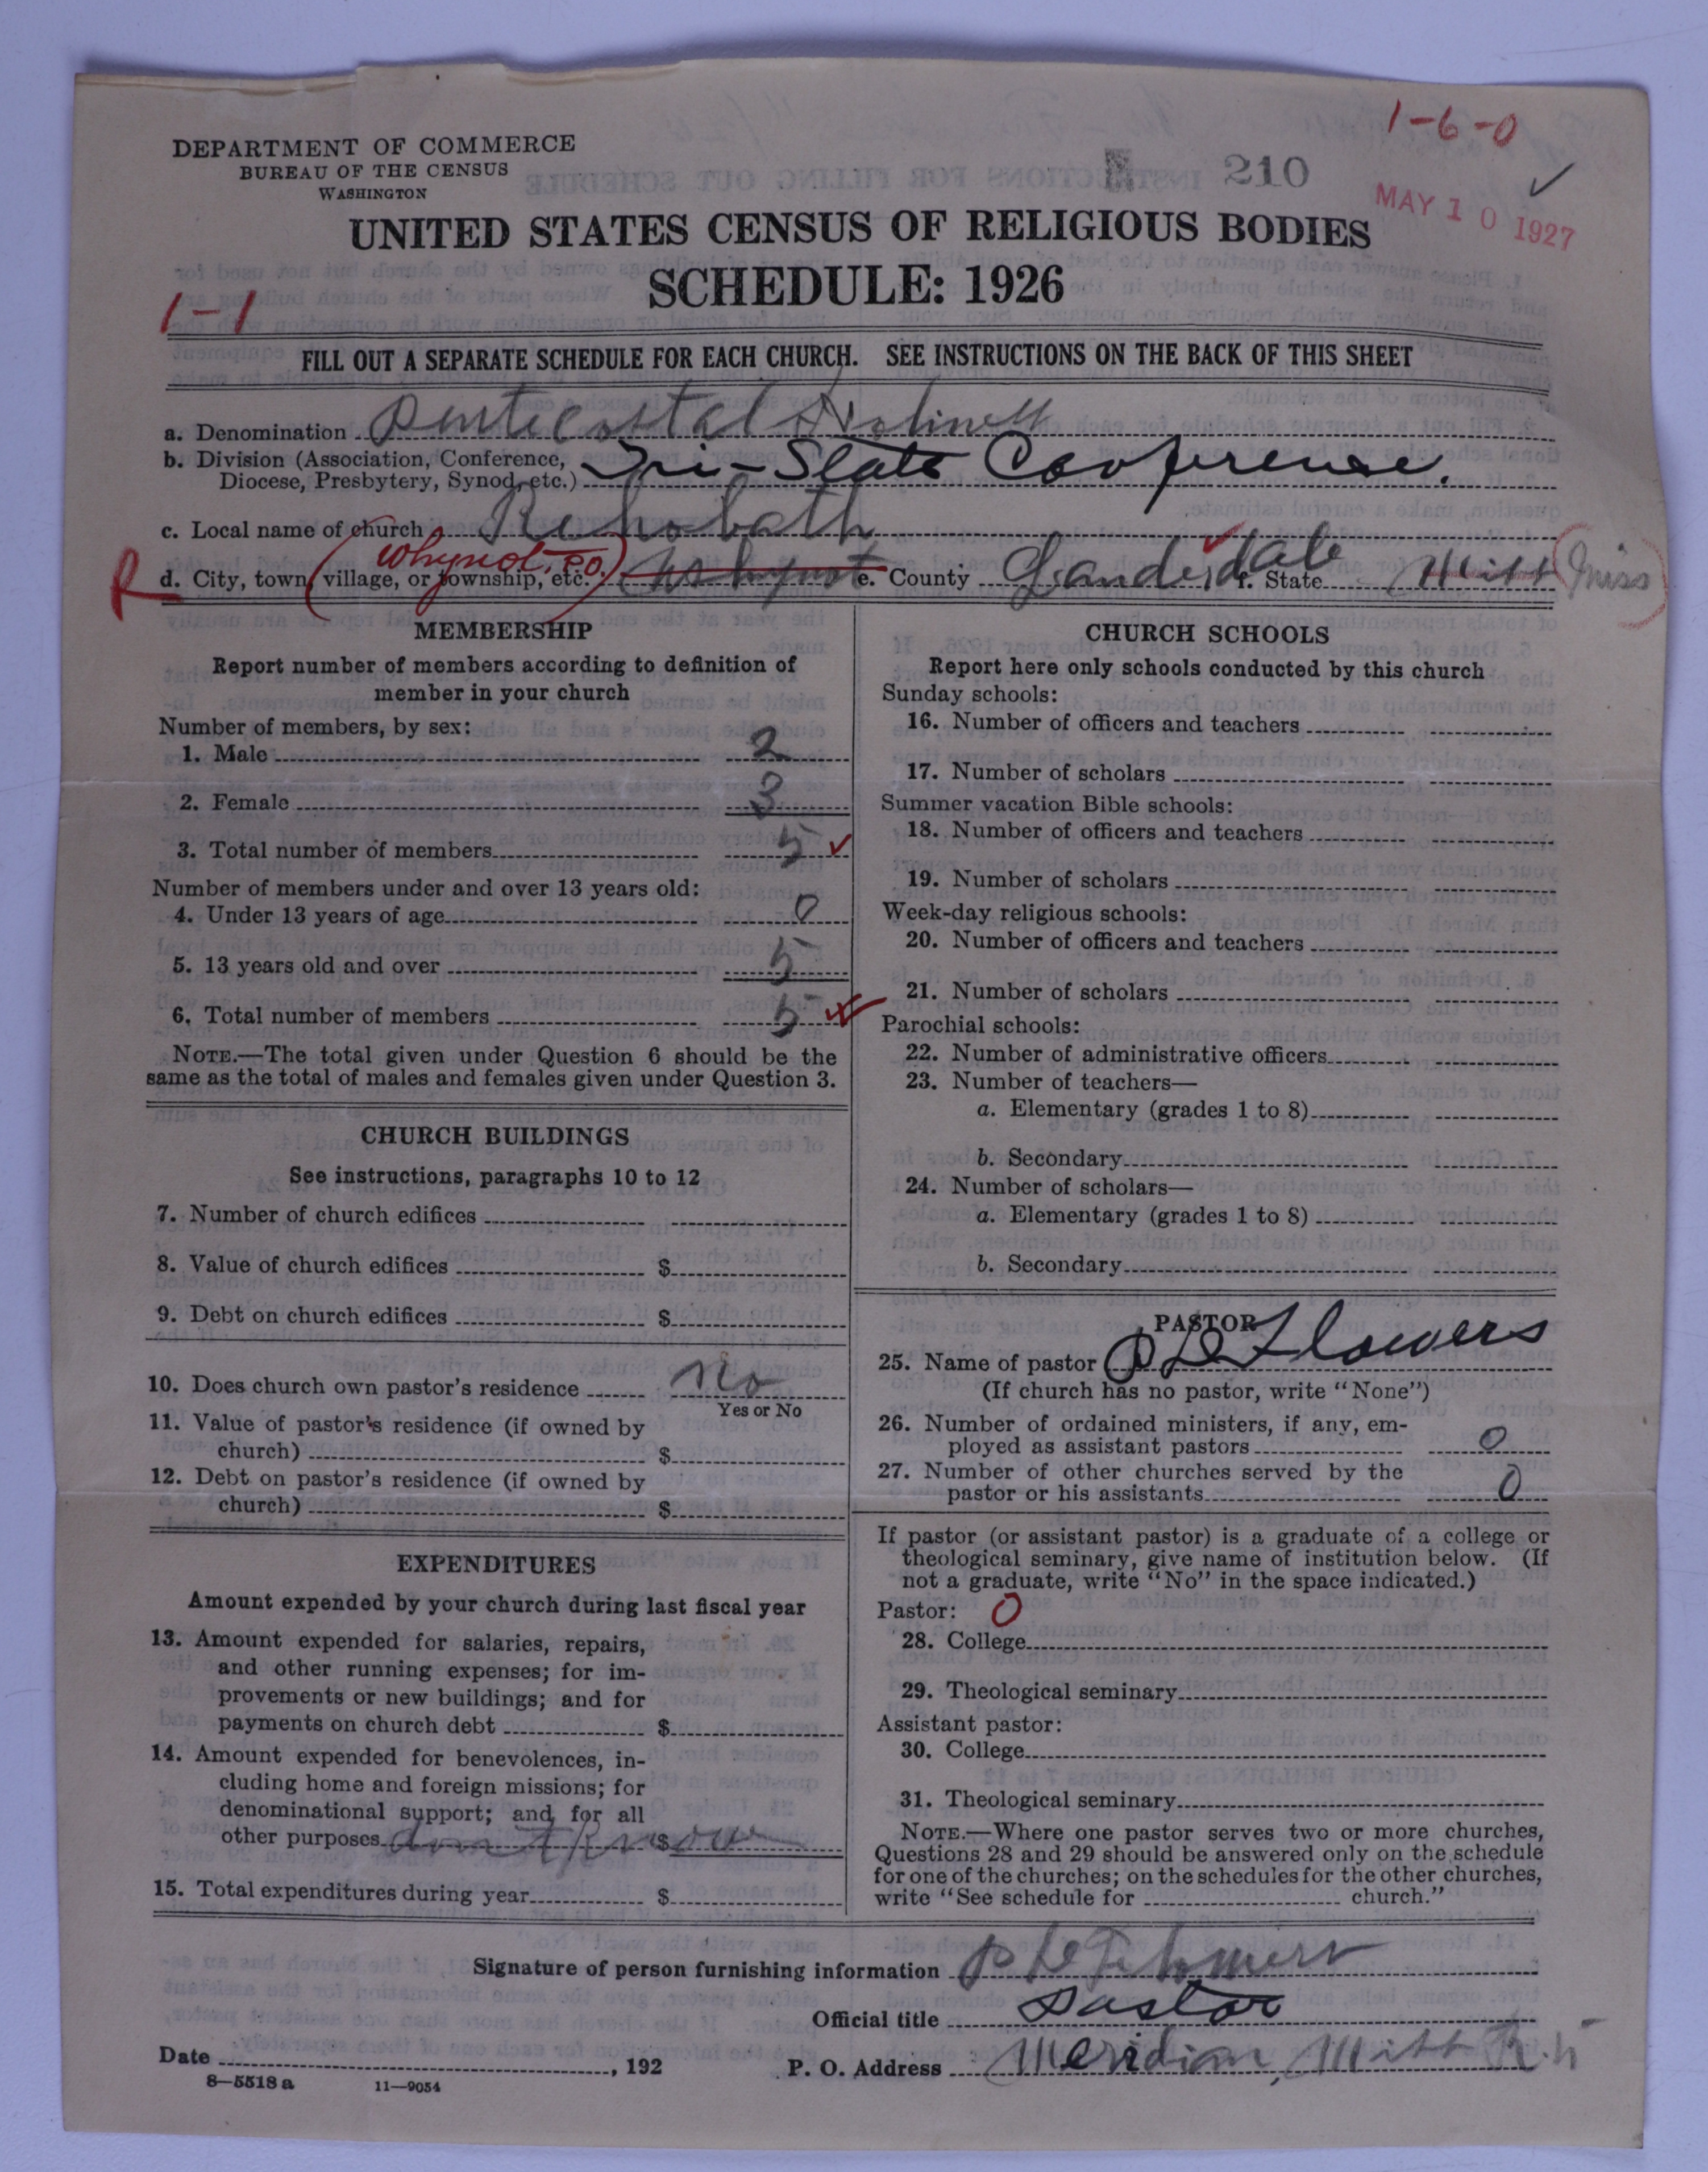 1-6-0
DEPARTMENT OF COMMERCE
BUREAU OF THE CENSUS
WASHINGTON
210
MAY 10 1927
UNITED STATES CENSUS OF RELIGIOUS BODIES
SCHEDULE: 1926
1-1
FILL OUT A SEPARATE SCHEDULE FOR EACH CHURCH. SEE INSTRUCTIONS ON THE BACK OF THIS SHEET
a. Denomination Pentecostal Holiness
b. Division (Association, Conference, Diocese, Presbytery, Synod, etc.) Tri-State Conference.
c. Local name of church Rehobath
R d. City, town, village, or township, etc. Whynot. P.O. Whynot e. County Lauderdale f. State Miss Miss
MEMBERSHIP
Report number of members according to definition of
member in your church
Number of members, by sex:
1. Male 2
2. Female 3
3. Total number of members 5 ✓
Number of members under and over 13 years old:
4. Under 13 years of age 0
5. 13 years old and over 5
6. Total number of members 5
NOTE.—The total given under Question 6 should be the
same as the total of males and females given under Question 3.
CHURCH BUILDINGS
See instructions, paragraphs 10 to 12
7. Number of church edifices
8. Value of church edifices $
9. Debt on church edifices $
10. Does church own pastor's residence No
Yes or No
11. Value of pastor's residence (if owned by
church) $
12. Debt on pastor's residence (if owned by
church) $
EXPENDITURES
Amount expended by your church during last fiscal year
13. Amount expended for salaries, repairs,
and other running expenses; for im-
provements or new buildings; and for
payments on church debt $
14. Amount expended for benevolences, in-
cluding home and foreign missions; for
denominational support; and for all
other purposes dont know $
15. Total expenditures during year $
CHURCH SCHOOLS
Report here only schools conducted by this church
Sunday schools:
16. Number of officers and teachers
17. Number of scholars
Summer vacation Bible schools:
18. Number of officers and teachers
19. Number of scholars
Week-day religious schools:
20. Number of officers and teachers
21. Number of scholars
Parochial schools:
22. Number of administrative officers
23. Number of teachers—
a. Elementary (grades 1 to 8)
b. Secondary
24. Number of scholars—
a. Elementary (grades 1 to 8)
b. Secondary
PASTOR
25. Name of pastor P D Flowers
(If church has no pastor, write "None")
26. Number of ordained ministers, if any, em-
ployed as assistant pastors 0
27. Number of other churches served by the
pastor or his assistants 0
If pastor (or assistant pastor) is a graduate of a college or
theological seminary, give name of institution below. (If
not a graduate, write "No" in the space indicated.)
Pastor: 0
28. College
29. Theological seminary
Assistant pastor:
30. College
31. Theological seminary
NOTE.—Where one pastor serves two or more churches,
Questions 28 and 29 should be answered only on the schedule
for one of the churches; on the schedules for the other churches,
write "See schedule for church."
Signature of person furnishing information P D Flowers
Official title Pastor
Date , 192
P. O. Address Meridian, Miss R.5
8—5518 a 11—9054